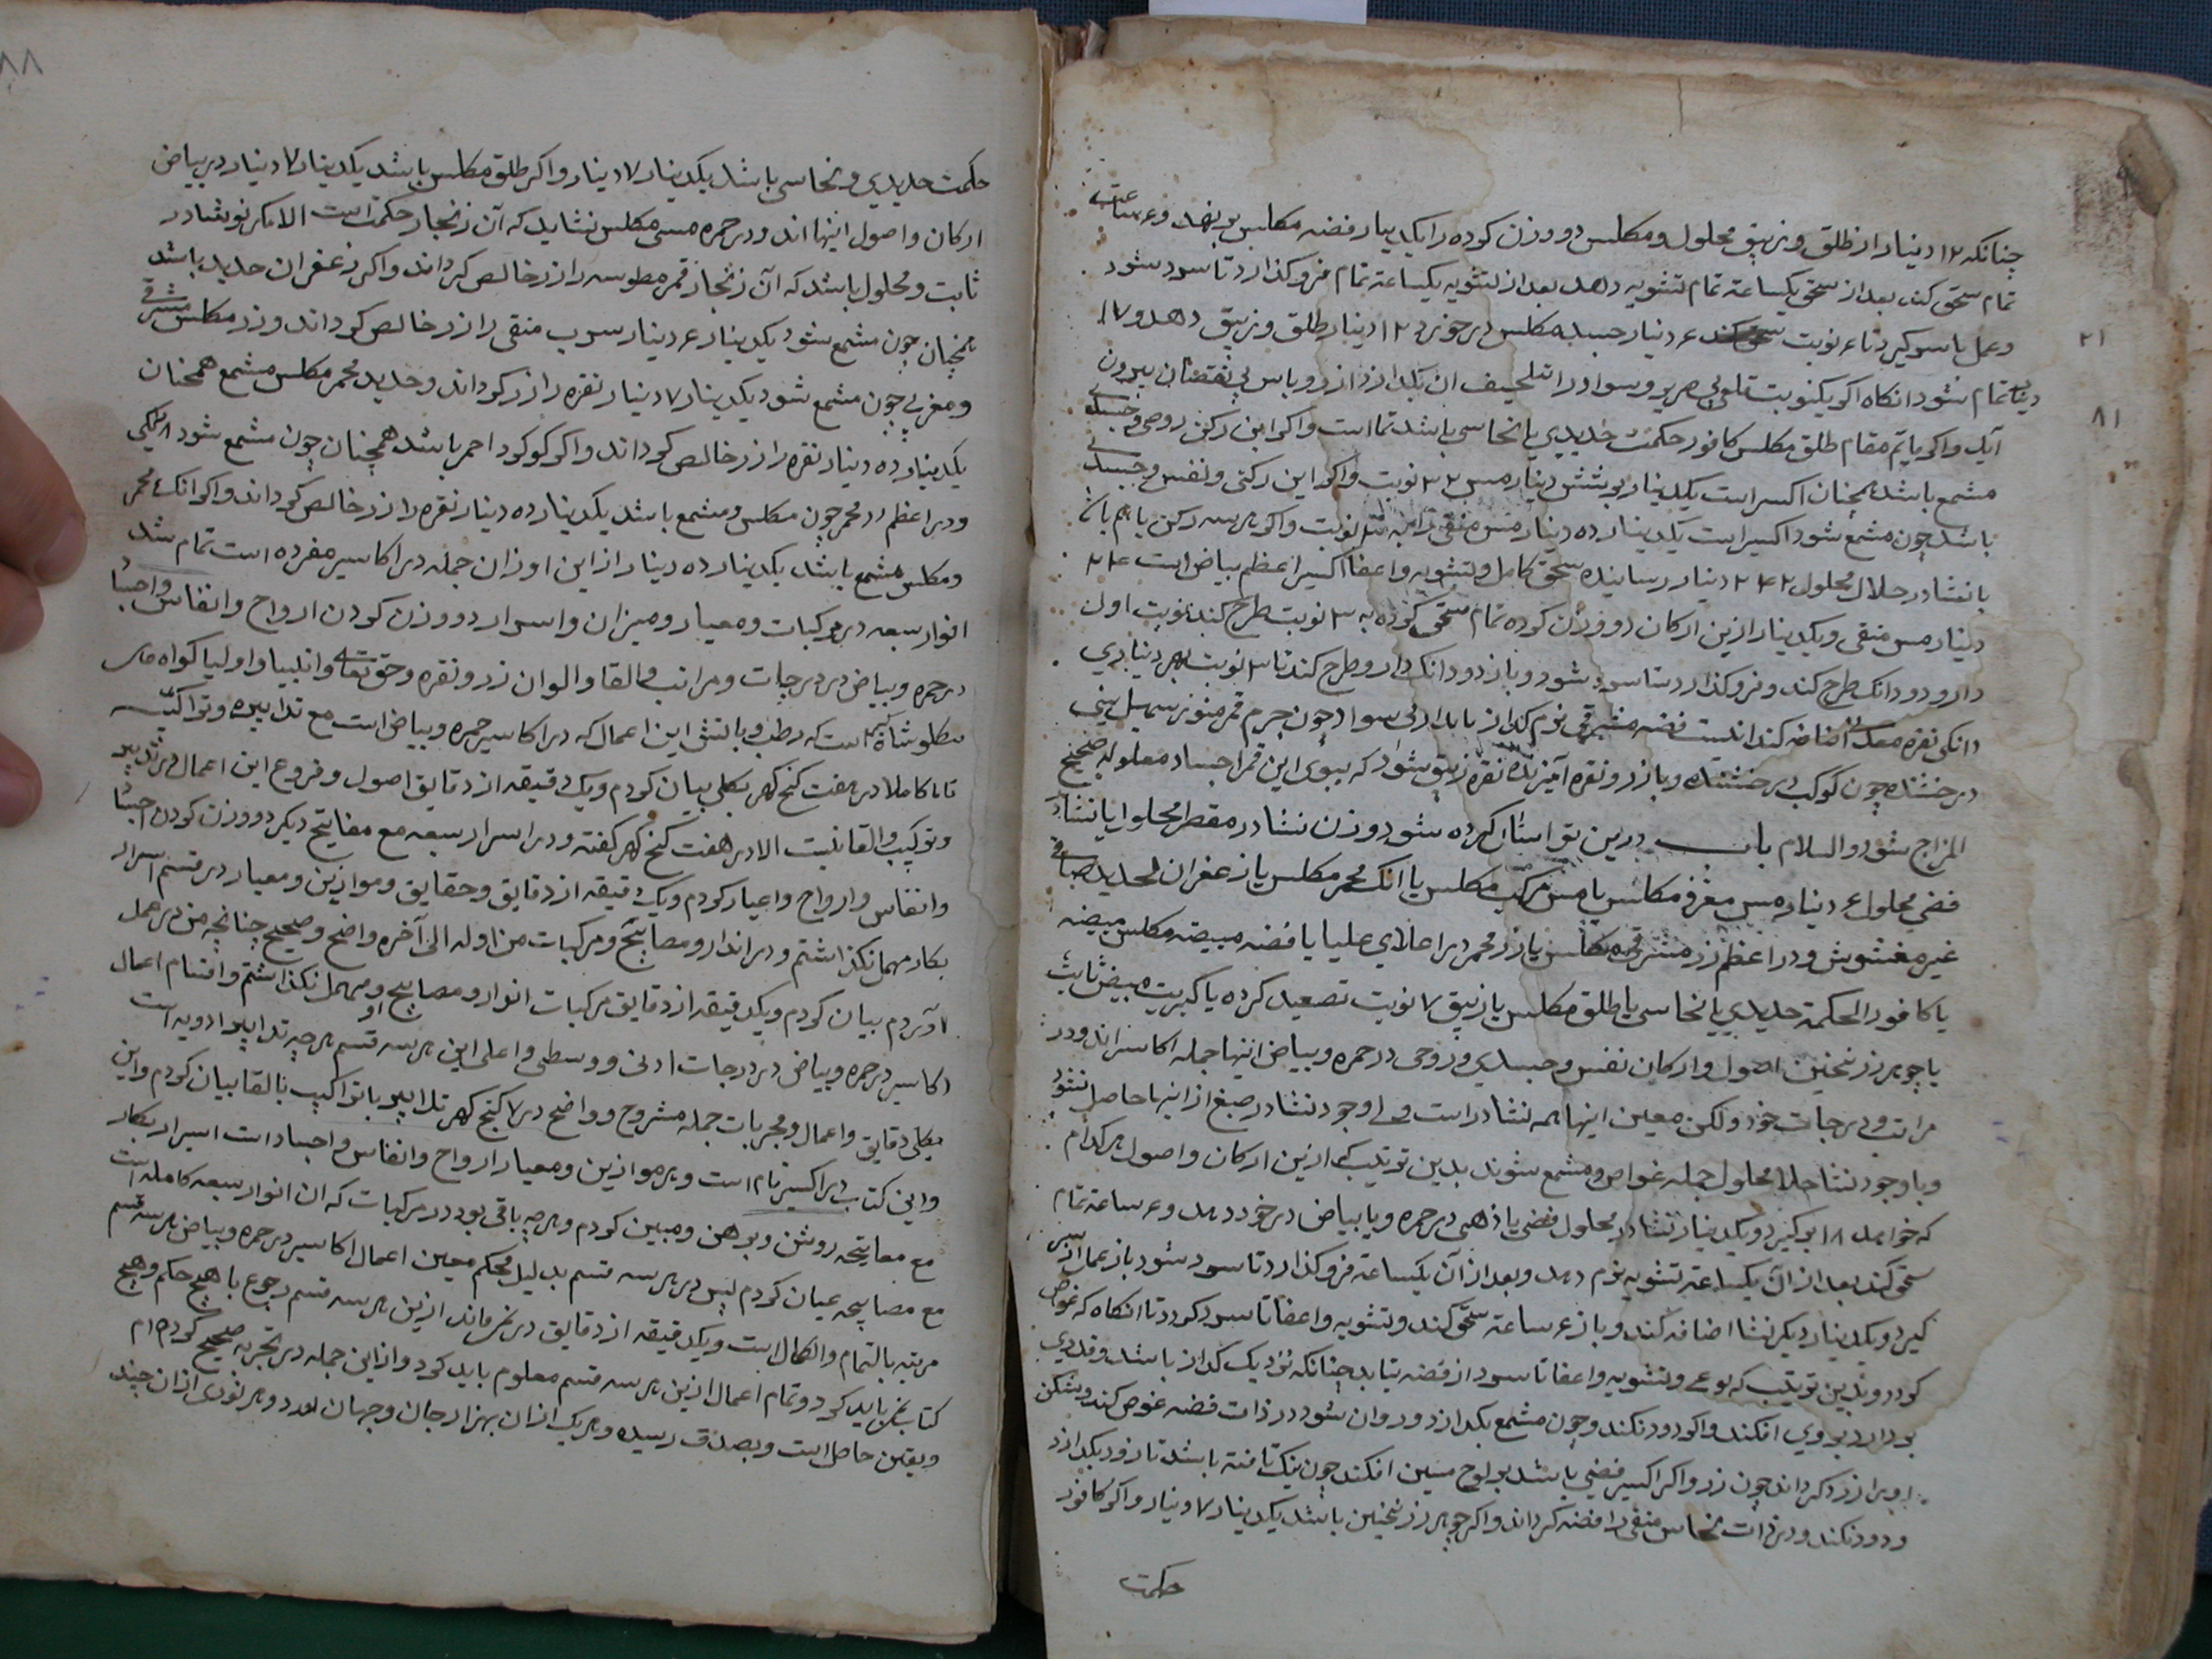 چنانکه ۱۲ دینار از طلق و زیبق محلول و مکلس دو وزن کوده را یکدینار فضه مکلس بر نهد و ۶ ساعت
تمام سحق کند بعد از سحق یکساعته تمام تشویه دهد بعد از تشویه یکساعته تمام فرو کذارد تا سود شود
و عمل با سو کیرد تا ۶ نوبت ۶ دینار جسد مکلس در خورد ۱۲ دینار طلق و زیبق دهد و ۱۷
۲۱
تمام شود انکاه اکر یکنوبت و سواد را ان بکدازد از رو باس بی نقصان بیرون
آید و اکر یا بم مقام طلق مکلس کافور حکمت حدیدی یا نحاسی باشد تمامست و اکر این رکن روحی و جسدی
۸۱
مشمع باشد همچنان اکسیر است یکدینار بر شش دینار مس ۳۲ نوبت و اکر این رکنی و نفس و جسدی
باشد چون مشمع شود اکسیر است یکدینار ده دینار مس منقی نوبت و اکر هر سه رکن با هم باز
با نشادر حلال محلول ۲۴۲ دینار رسانیده سحق کامل و تشویه و اعفا اکسیر اعظم بیاض است ۲۴
دینار مس منقی و یکدینار ازین ارکان دو وزن کوده تمام سحق کوده به ۳ نوبت طرح کند نوبت اول
دارو دو دانک طرح کند و فرو کذارد تا سود شود و باز دو دانک دارو طرح کند تا ۳ نوبت بهر دیناری
دانکی نقره معدنی اضافه کند انیست فضه مشرقی نرم کداز بی سواد چون جرم قمر منور سهیل یمنی
درخشنده چون کوکب درخشنده و باز زر و نقره آمیزنده نقره زیبق شود که ببوی این قمر اجساد معلوله صحیح
المزاج شود والسلام باب درین کرده شود وزن نشادر مقطر محلول یا نشادر
فضی محلول ۶ دینار مس مغربی مکلس یا مس مرکب مکلس یا انک محمر مکلس یا زعفران الحدید صافی
غیر مغشوش و در اعظم زر مشرقی مکلس یا زر محمر در اعلای علیا یا فضه مبیضه مکلس مبیضه
یا کافور الحکمة حدیدی یا نحاسی یا طلق مکلس یا زیبق ۷ نوبت تصعید کرده یا کبریت مبیض ثابت
یا جوهر زرنیخین اصول و ارکان نفس و جسدی و روحی در حمره و بیاض اینها جمله اکاسر اند و در
مراتب و درجات خود ولکن معین اینها همه نشادر است و بی وجود نشادر صبغ از اینها حاصل نشود
و با وجود نشادر حلال محلول جمله غواص و مشمع شوند بدین ترتیب که ازین ارکان و اصول هر کدام
که خواهد ۱۸ بر کیرد و یکدینار نشادر محلول فضی یا ذهبی در حمره و یا بیاض در خورد دهد و ۶ ساعة تمام
سحق کند بعد از آن یکساعته تشویه نرم دهد و بعد از آن یکساعته فرو کذارد تا سود شود باز عمل از سر
کیرد و یکدینار دیکر نشا اضافه کند و باز ۶ ساعة سحق کند و تشویه و اعفا تا سود کردد تا انکاه که غواص
کردد و بدین ترتیب که نوعی و تشویه و اعفا تا سود از فضه بتابد چنانکه نزدیک کداز باشد و قدری
بردارد بر وی افکند و اکر دود نکند و چون مشمع بکدازد و روان شود در ذات فضه غوص کند و نشکن
او را زر کرداند چون زر و اکر اکسیر فضی باشد بر لوح مسین افکند چون نیک تافته باشد تا زود بکدازد
و دود نکند و در ذات نحاس منقی را فضه کرداند و اکر جوهر زرنیخین باشد یکدینار ۷ دینار و اکر کافور
حکمت
۸۸
حکمت حدیدی و نحاسی باشد یکدینار ۷ دینار و اکر طلق مکلس باشد یکدینار ۷ دینار در بیاض
ارکان و اصول اینها اند و در حمره مسی مکلس نشاید که آن زنجار حکمتست الا مکر نوشادر
ثابت و محلول باشد که آن زنجار قمر مطوسه را زر خالص کرداند و اکر زعفران حدید باشد
همچنان چون مشمع شود یکدینار ۶ دینار سرب منقی را زر خالص کرداند و زر مکلس مشرقی
و مغربی چون مشمع شود یکدینار ۷ دینار نقره را زر کرداند و حدید محمر مکلس مشمع همچنان
یکدینار ده دینار نقره را زر خالص کرداند و اکر کوکرد احمر باشد همچنان چون مشمع شود
و در اعظم زر محمر چون مکلس و مشمع باشد یکدینار ده دینار نقره را زر خالص کرداند و اکر انک محمر
و مکلس مشمع باشد یکدینار ده دینار از این اوزان جمله در اکاسیر مفرده است تمام شد
انوار سبعه در مرکبات و معیار و میزان و اسرار دو وزن کودن ارواح و انفاس و اجساد
در حمره و بیاض در درجات و مراتب و القا و الوان زر و نقره و حق تعالی و انبیا و اولیا کواه ماس
است که رطب و یابس این اعمال که در اکاسیر حمره و بیاض است مع تدابیره و تراکیبه
تاما کاملا در هفت کنج کهر بکلی بیان کردم و یک دقیقه از دقایق اصول و فروع این اعمال در تدبیر
و ترکیب و القا نیست الا در هفت کنج کهر کفته و در اسرار سبعه مع مفاتیح دیکر دو وزن کودن اجساد
و انفاس و ارواح و اعیار کردم و یک دقیقه از دقایق و حقایق و موازین و معیار در قسم اسرار
بکار مهمل نکذاشتم و در انوار و مصابیح و مرکبات من اوله الی آخره واضح و صحیح چنانچه من در عمل
آوردم بیان کردم و یکدقیقه از دقایق مرکبات انوار و مصابیح او مهمل نکذاشتم و اقسام اعمال
اکاسیر در حمره و بیاض در درجات ادنی و وسطی و اعلی این هر سه قسم هرچه تدابیر ادویه است
بکلی دقایق و اعمال و مجربات جمله مشروح و واضح در ۷ کنج کهر تدابیر با تراکیب با القا بیان کردم و این
و این کتاب در اکسیر تام است و هر موازین و معیار ارواح و انفاس و اجساد است اسرار بکار
مع مفاتیحه روشن و برهن و مبین کردم و هرچه باقی بود در مرکبات که ان انوار سبعه کامله است
مع مصابیحه عیان کردم پس در هر سه قسم بدلیل محکم معین اعمال اکاسیر در حمره و بیاض هر سه قسم
مرتبه بالتمام و الکمال است و یکدقیقه از دقایق در نماند ازین هر سه قسم رجوع با هیچ حکم و هیچ
کتاب نباید کرد و تمام اعمال ازین هر سه قسم معلوم باید کرد و از این جمله در تجربه صحیح کرده ام
و بیقین حاصل است و بصدق رسیده و هر یک از ان بهزار جان و جهان ارزد و هر نوری از ان چند